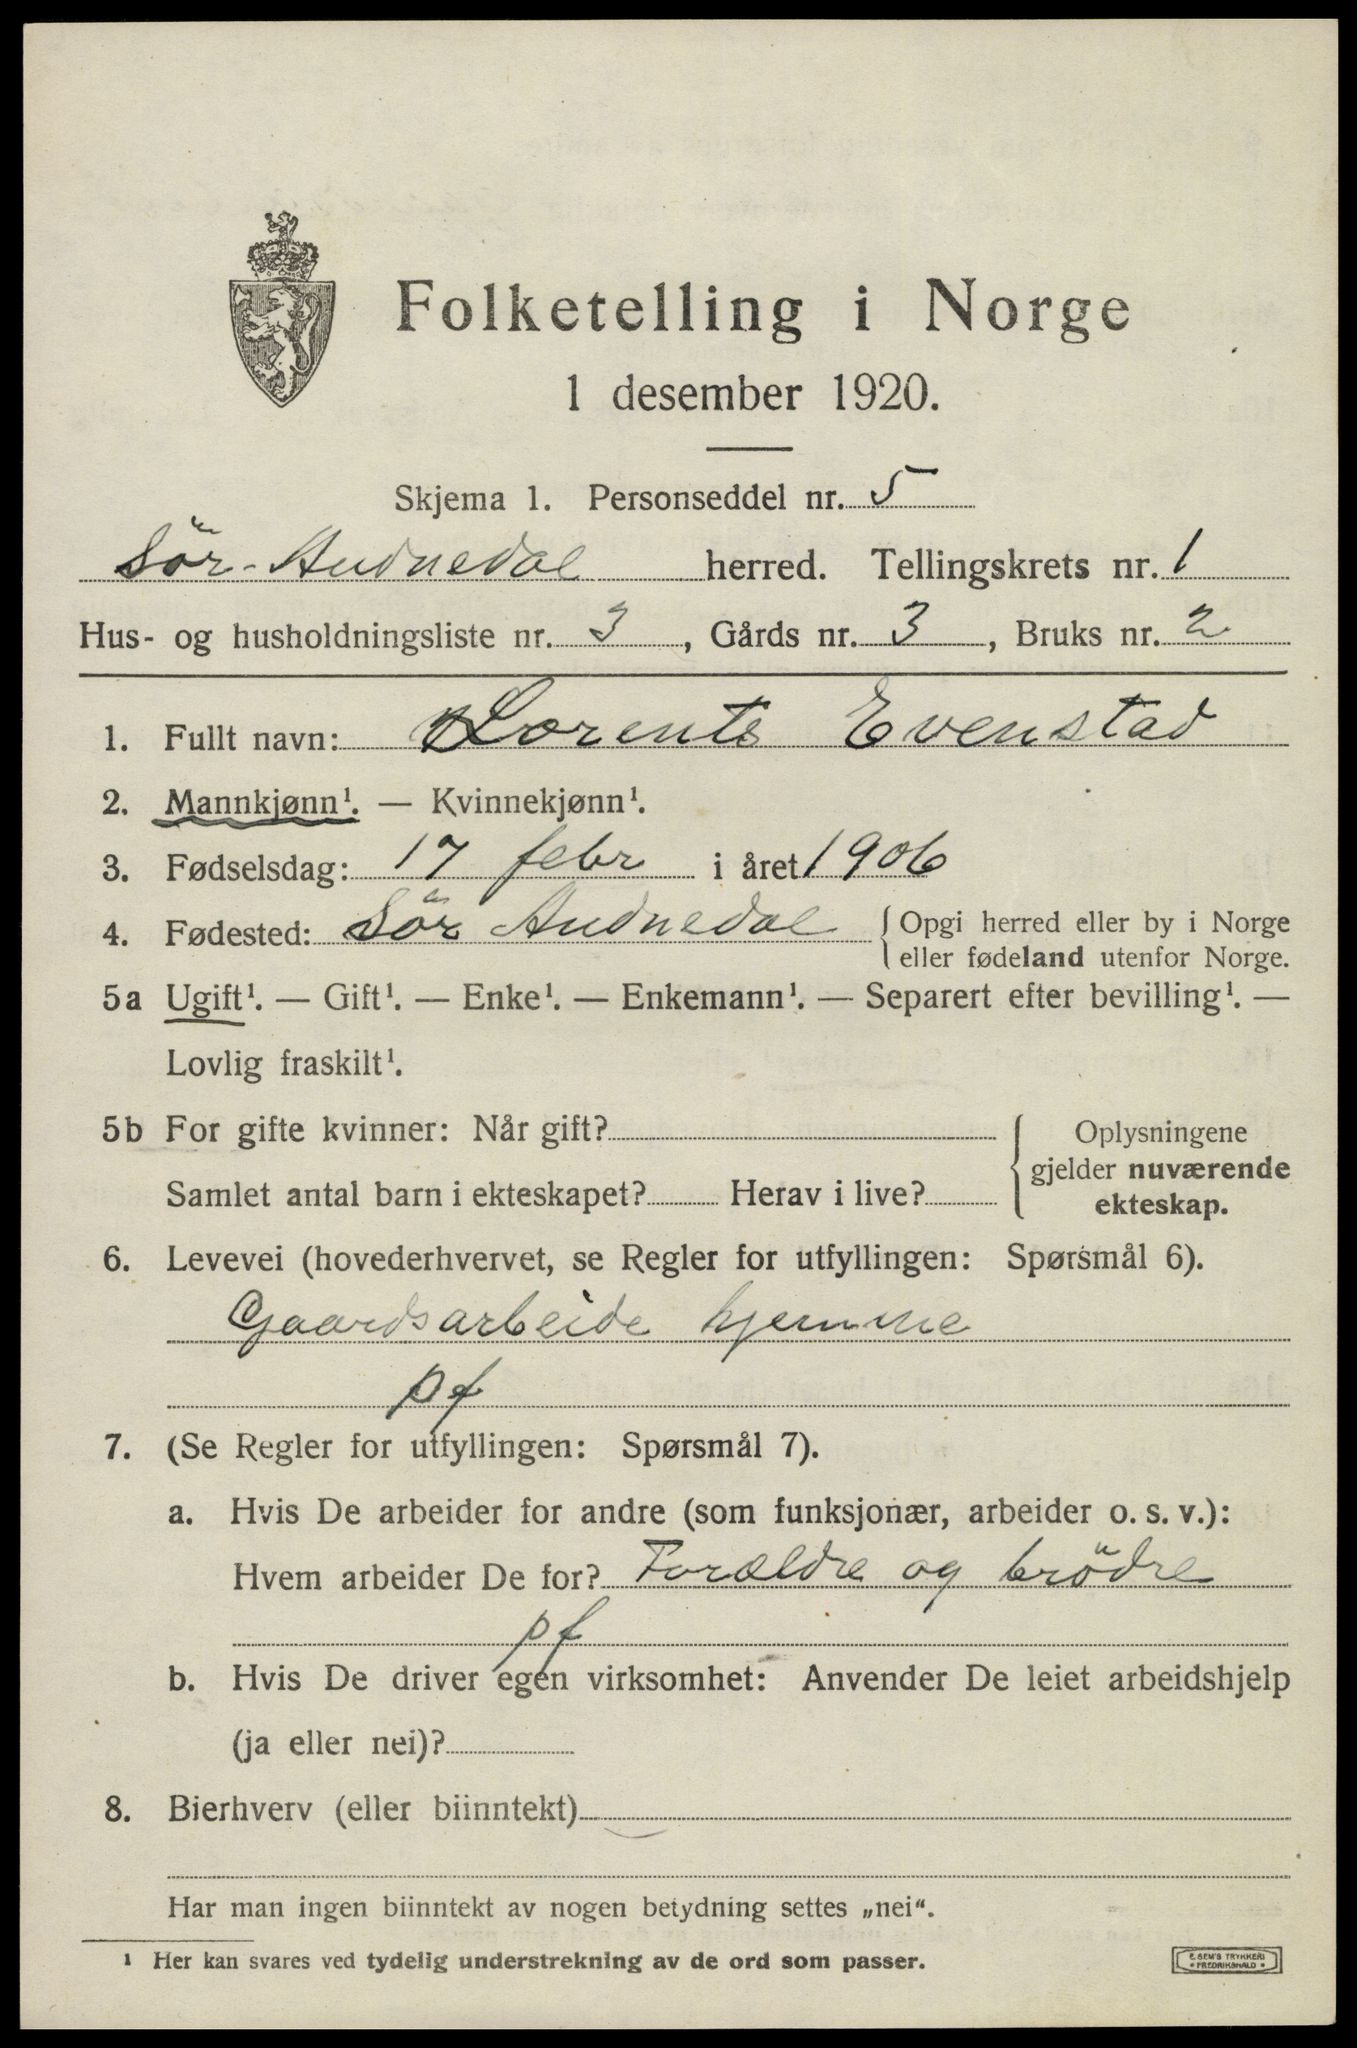 Folketelling i Norge
1 desember 1920.
Skjema 1. Personseddel nr. 5
Sör-Audnedal herred. Tellingskrets nr. 1
Hus- og husholdningsliste nr. 3, Gårds nr. 3, Bruks nr. 2
1. Fullt navn: Lorents Evenstad
2. Mannkjønn¹. — Kvinnekjønn¹.
3. Fødselsdag: 17 febr i året 1906
4. Fødested: Sör Audnedal { Opgi herred eller by i Norge
eller fødeland utenfor Norge.
5a Ugift¹. — Gift¹. — Enke¹. — Enkemann¹. — Separert efter bevilling¹. —
Lovlig fraskilt¹.
5b For gifte kvinner: Når gift?
Samlet antal barn i ekteskapet? Herav i live?
Oplysningene
gjelder nuværende
ekteskap.
6. Levevei (hovederhvervet, se Regler for utfyllingen: Spørsmål 6).
Gaardsarbeide hjemme
pf
7. (Se Regler for utfyllingen: Spørsmål 7).
a. Hvis De arbeider for andre (som funksjonær, arbeider o. s. v.):
Hvem arbeider De for? Forældre og brödre
pf
b. Hvis De driver egen virksomhet: Anvender De leiet arbeidshjelp
(ja eller nei)?
8. Bierhverv (eller biinntekt)
Har man ingen biinntekt av nogen betydning settes „nei“.
¹ Her kan svares ved tydelig understrekning av de ord som passer.
E. SEM'S TRYKKERI
• FREDRIKSHALD •